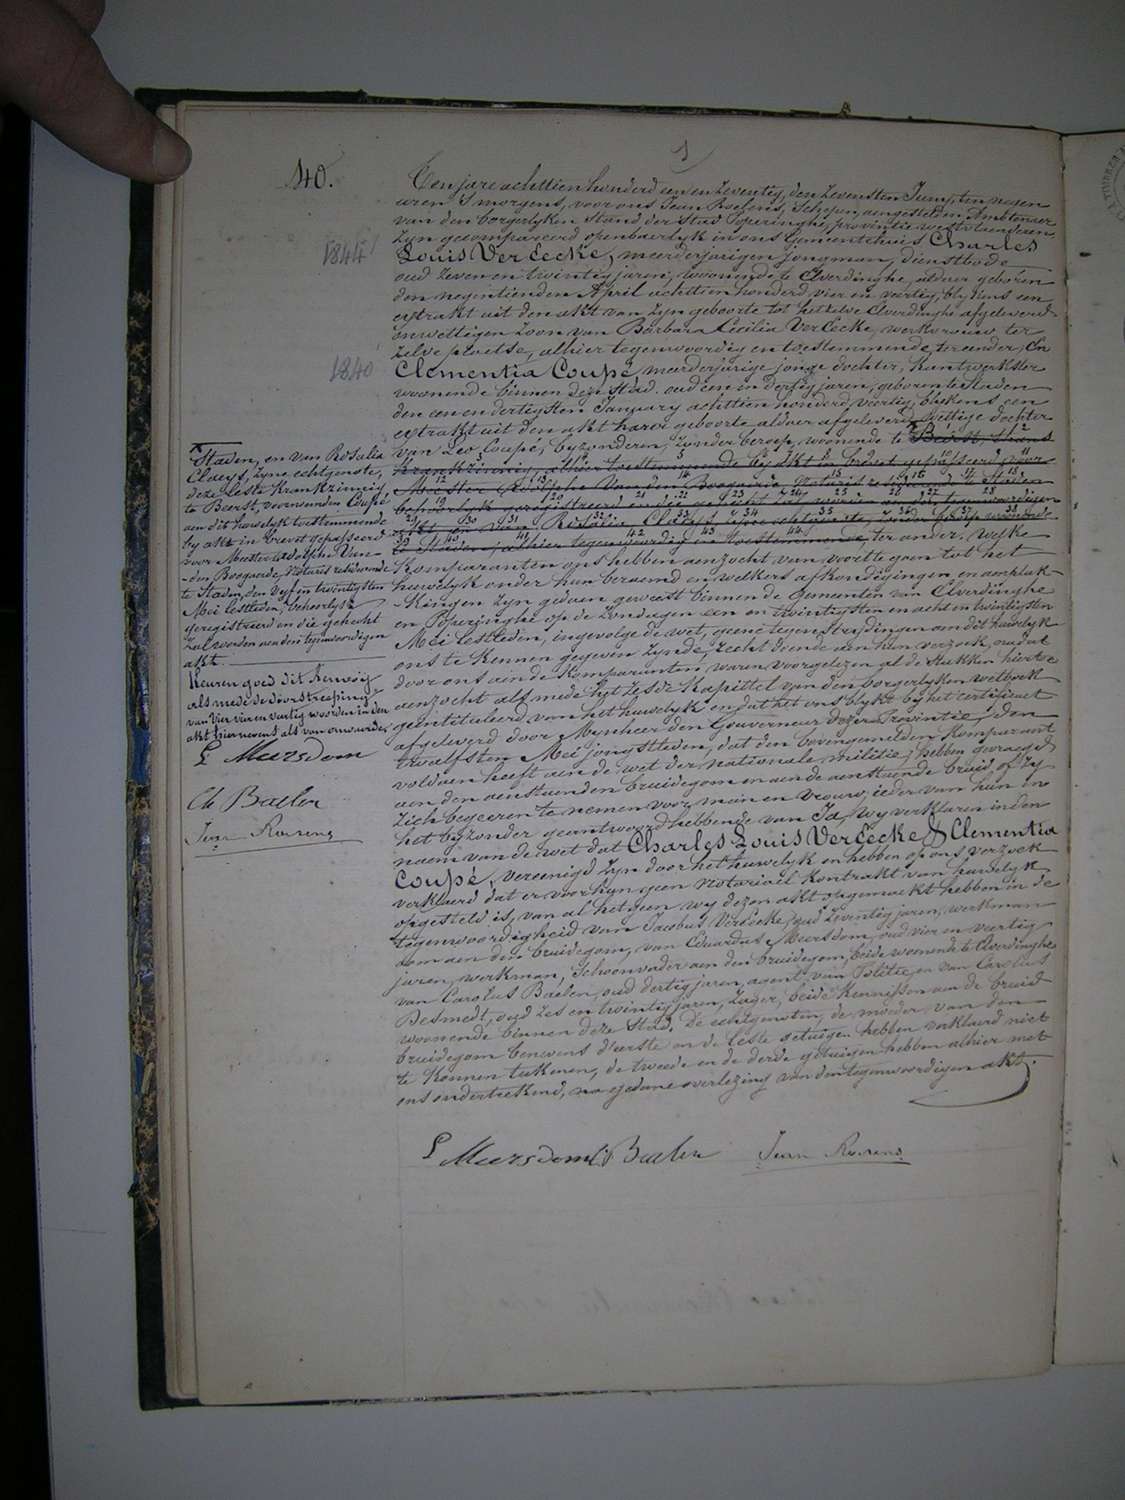 40.
Ten jare achttien honderd een en zeventig, den zevensten Juny, ten negen
uren 's morgens, voor ons Jean Roosens, Schepen, aengesteld en Ambtenaer
van den borgerlyken Stand der stad Poperinghe, provintie westvlaenderen
zyn gecompareerd openbaerlyk in ons Gemeentehuis Charles
1844
Louis VerEecke, meerderjarigen jongman, dienstbode
oud zeven en twintig jaren, woonende te Elverdinghe, aldaer geboren
den negentienden April achttien honderd vier en veertig, blykens een
extrakt uit den akt van zyn geboorte tot hetzelve Elverdinghe afgeleverd
onwettigen zoon van Barbara Cecilia VerEecke, werkvrouw, ter
zelve plaetse, alhier tegenwoordig en toestemmende, ter eender, En
1840
Clementia Coupé, meerderjarige jonge dochter, kantwerkster
woonende binnen deze Stad, oud een en dertig jaren, geboren te Staden
den een en dertigsten January achttien honderd veertig, blykens een
extrakt uit den akt harer geboorte aldaer afgeleverd, wettige dochter
van Leo Coupé, byzonderen, zonder beroep, woonende te Beerst, thans
krankzinnig, alhier toestemmende by akt in brevet gepasseerd voor
Meester Adolphe Van den Bogaerde, Notaris residerende te Staden
behoorlyk geregistreerd en die gehecht zal worden aen den tegenwoordigen
akt, en van Rosalia Claeys, zyne echtgenote, zonder beroep, woonende
te Staden, alhier tegenwoordig en toestemmende, ter ander. Welke
komparanten ons hebben aenzocht van voorttegaen tot het
huwelyk onder hun beraemd en welkers afkondigingen en aenplak-
-kingen zyn gedaen geweest binnen de Gemeenten van Elverdinghe
en Poperinghe op de zondagen een en twintigsten en acht en twintigsten
Mei lestleden, ingevolge de wet, geene tegenstrydingen aen dit huwelyk
ons te kennen gegeven zynde, recht doende aen hun verzoek, nadat
door ons aen de komparanten waren voorgelezen al de stukken hiertoe
aenzocht als mede het zesde kapittel van den borgerlyken wetboek
geintituleerd van het huwelyk en dat het ons blykt by het certificaet
afgeleverd door Mynheer den Gouverneur dezer Provintie, den
twaelfsten Mei jongstleden, dat den bovengemelden komparant
voldaen heeft aen de wet der nationale militie, hebben gevraegd
aen den aenstaenden bruidegom en aen de aenstaende bruid of zy
zich begeeren te nemen voor man en vrouw, ieder van hun in
het byzonder geantwoord hebbende van Ja, wy verklaren in den
naem van de wet dat Charles Louis VerEecke & Clementia
Coupé, vereenigd zyn door het huwelyk en hebben op ons verzoek
verklaerd dat er voor hun geen notariael kontrakt van huwelyk
opgesteld is, van al hetgeen wy dezen akt opgemaekt hebben in de
tegenwoordigheid van Jacobus VerEecke, oud zeventig jaren, werkman
oom aen den bruidegom, van Eduardus Meersdom, oud vier en veertig
jaren, werkman, Schoonvader aen den bruidegom, beide woonende te Elverdinghe
van Carolus Baelen, oud dertig jaren, agent van Politie, en van Carolus
Desmedt, oud zes en twintig jaren, zager, beide kennissen aen de bruid
woonende binnen deze Stad. De echtgenoten, de moeder van den
bruidegom benevens d'eerste en de leste getuigen hebben verklaerd niet
te konnen teekenen, de tweede en de derde getuigen hebben alhier met
ons onderteekend, na gedane overlezing van den tegenwoordigen akt.
E Meersdom Ch Baelen Jean Roosens
Staden, en van Rosalia
Claeys, zyne echtgenote,
deze leste krankzinnig
te Beerst, vermanden Coupé
aen dit huwelyk toestemmende
by akt in brevet gepasseerd
voor Meester Adolphe Van-
-den Bogaerde, Notaris residerende
te Staden, den vyf en twintigsten
Mei lestleden, behoorlyk
geregistreerd en die gehecht
zal worden aen den tegenwoordigen
akt.
Keuren goed dit renvooy
als mede de doorstreeping
van vier en veertig woorden in den
akt hiernevens als van onwaarde.
E Meersdom
Ch Baelen
Jean Roosens